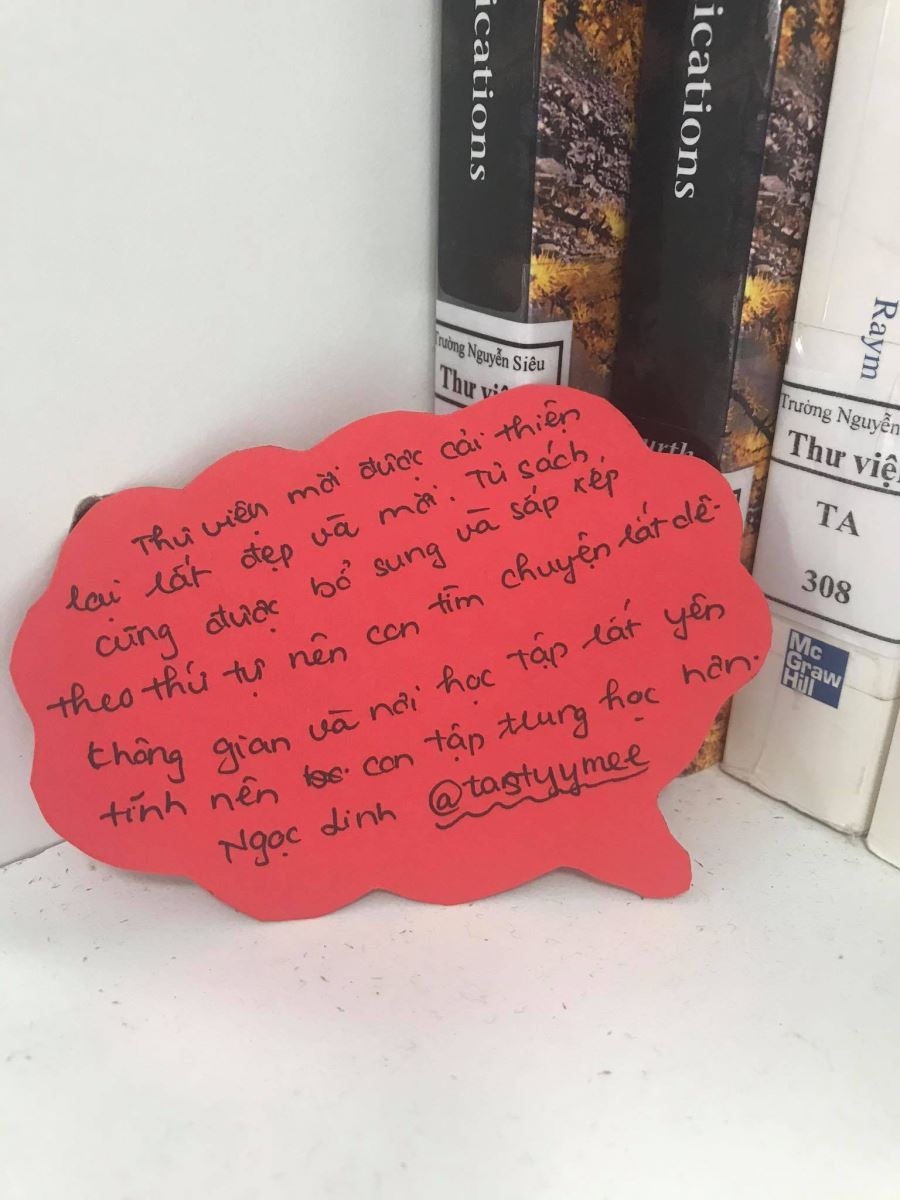 ications
ications
Raym
Trường Nguyễn Siêu
Thư việ
Trường Nguyễn
Thư việ
TA
308
Mc
Graw
Hill
Thư viện mời được cải thiện
lại lất đẹp và mời. Tủ sách
cũng được bổ sung và sắp xếp
theo thứ tự nên con tìm chuyện lất dễ.
Không gian và nơi học tập lất yên
tĩnh nên con tập trung học hơn.
Ngọc Linh @tastyymee